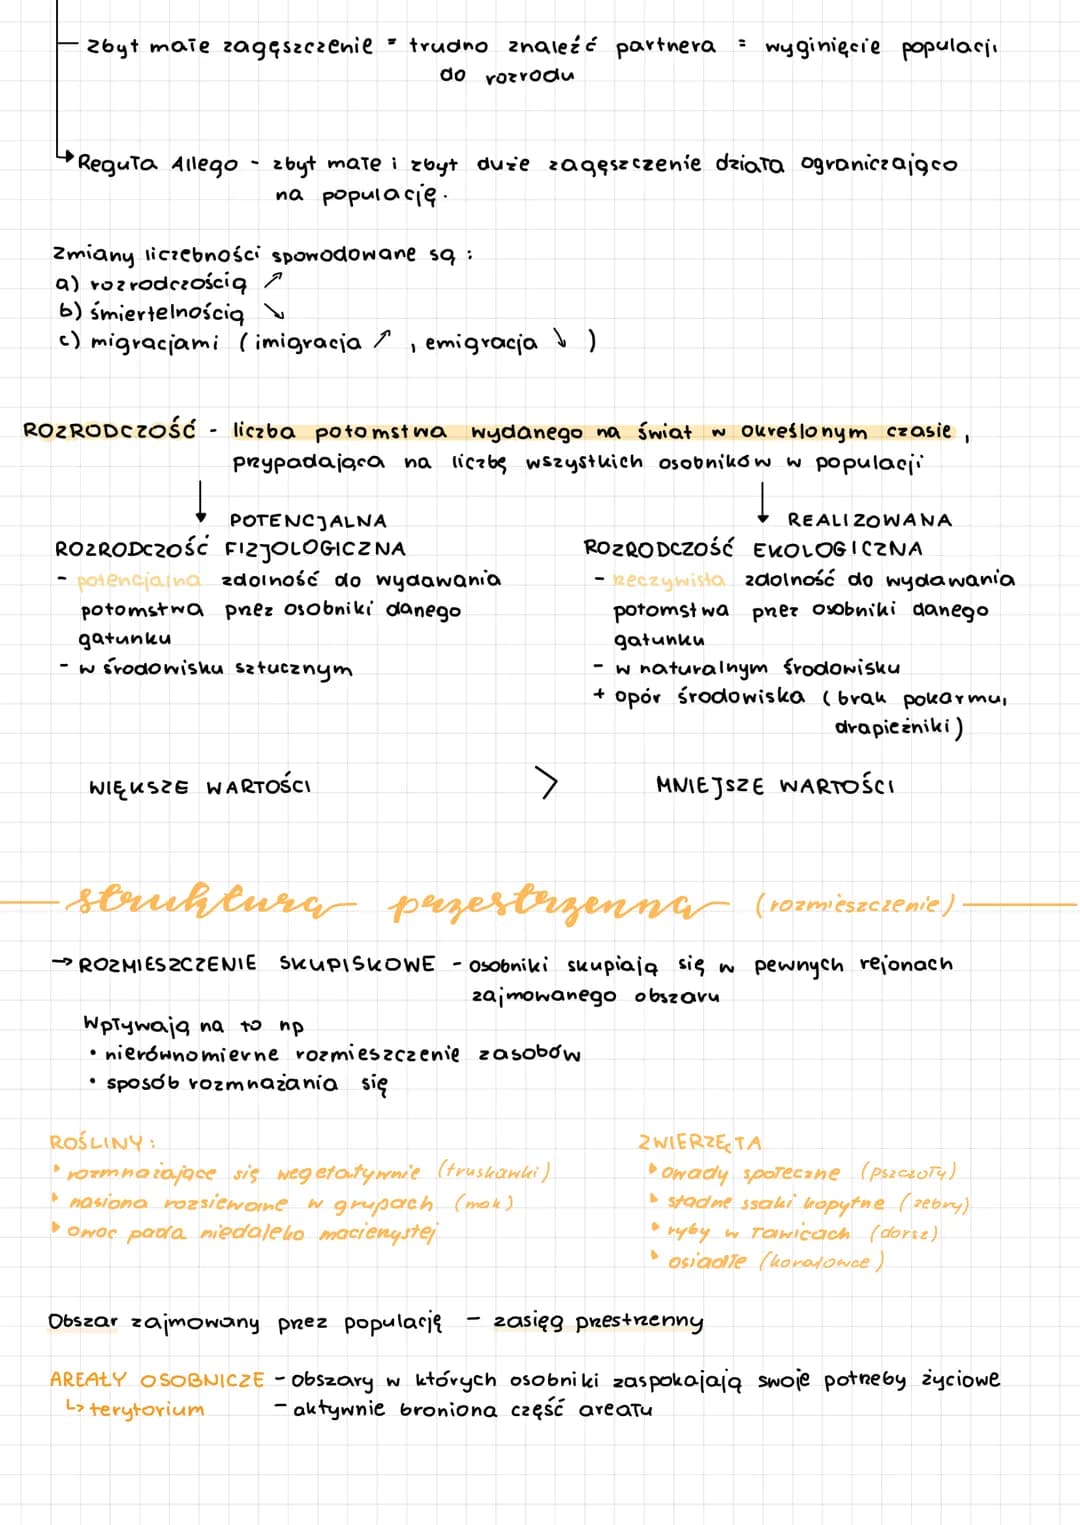 zbyt małe zagęszczenie = trudno znaleźć partnera = wyginięcie populacji
do rozrodu
Reguła Allego - zbyt małe i zbyt duże zagęszczenie działa ograniczająco
na populację.
Zmiany liczebności spowodowane są :
a) rozrodczością ↗
b) śmiertelnością ↘
c) migracjami ( imigracja ↗ , emigracja ↘ )
ROZRODCZOŚĆ - liczba potomstwa wydanego na świat w określonym czasie ,
przypadająca na liczbę wszystkich osobników w populacji
POTENCJALNA
ROZRODCZOŚĆ FIZJOLOGICZNA
- potencjalna zdolność do wydawania
potomstwa przez osobniki danego
gatunku
- w środowisku sztucznym
REALIZOWANA
ROZRODCZOŚĆ EKOLOGICZNA
- rzeczywista zdolność do wydawania
potomstwa przez osobniki danego
gatunku
- w naturalnym środowisku
+ opór środowiska ( brak pokarmu,
drapieżniki )
WIĘKSZE WARTOŚCI > MNIEJSZE WARTOŚCI
struktura przestrzenna (rozmieszczenie)
→ ROZMIESZCZENIE SKUPISKOWE - osobniki skupiają się w pewnych rejonach
zajmowanego obszaru
Wpływają na to np
• nierównomierne rozmieszczenie zasobów
• sposób rozmnażania się
ROŚLINY :
• rozmnażające się wegetatywnie (truskawki)
• nasiona rozsiewane w grupach (mak)
• owoc pada niedaleko macierzystej
ZWIERZĘTA
• owady społeczne (pszczoły)
• stadne ssaki kopytne (zebry)
• ryby w ławicach (dorsz)
• osiadłe (koralowce)
Obszar zajmowany przez populację - zasięg przestrzenny
AREAŁY OSOBNICZE - obszary w których osobniki zaspokajają swoje potrzeby życiowe
↳ terytorium - aktywnie broniona część areału